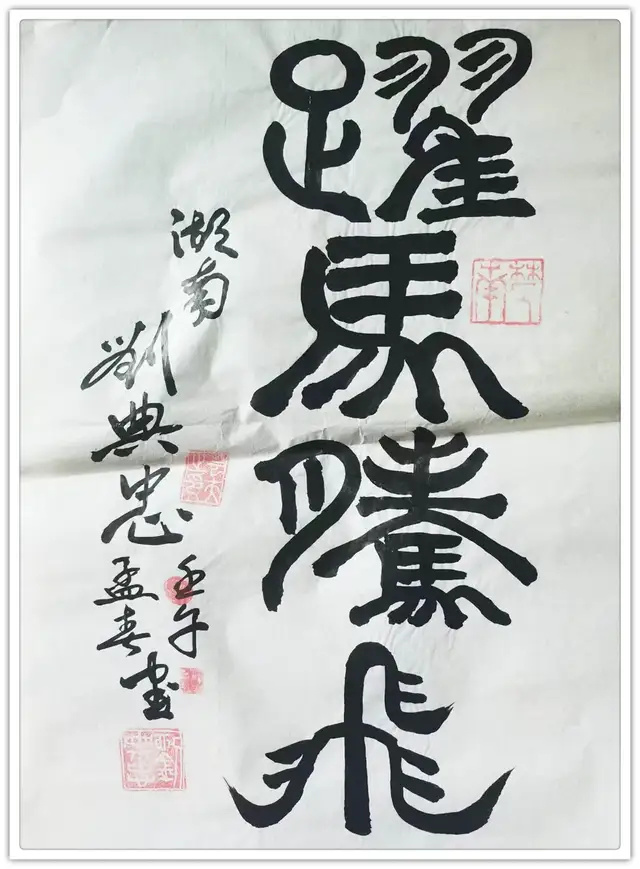 躍馬騰飛
湖南
劉典忠
壬午
孟春書